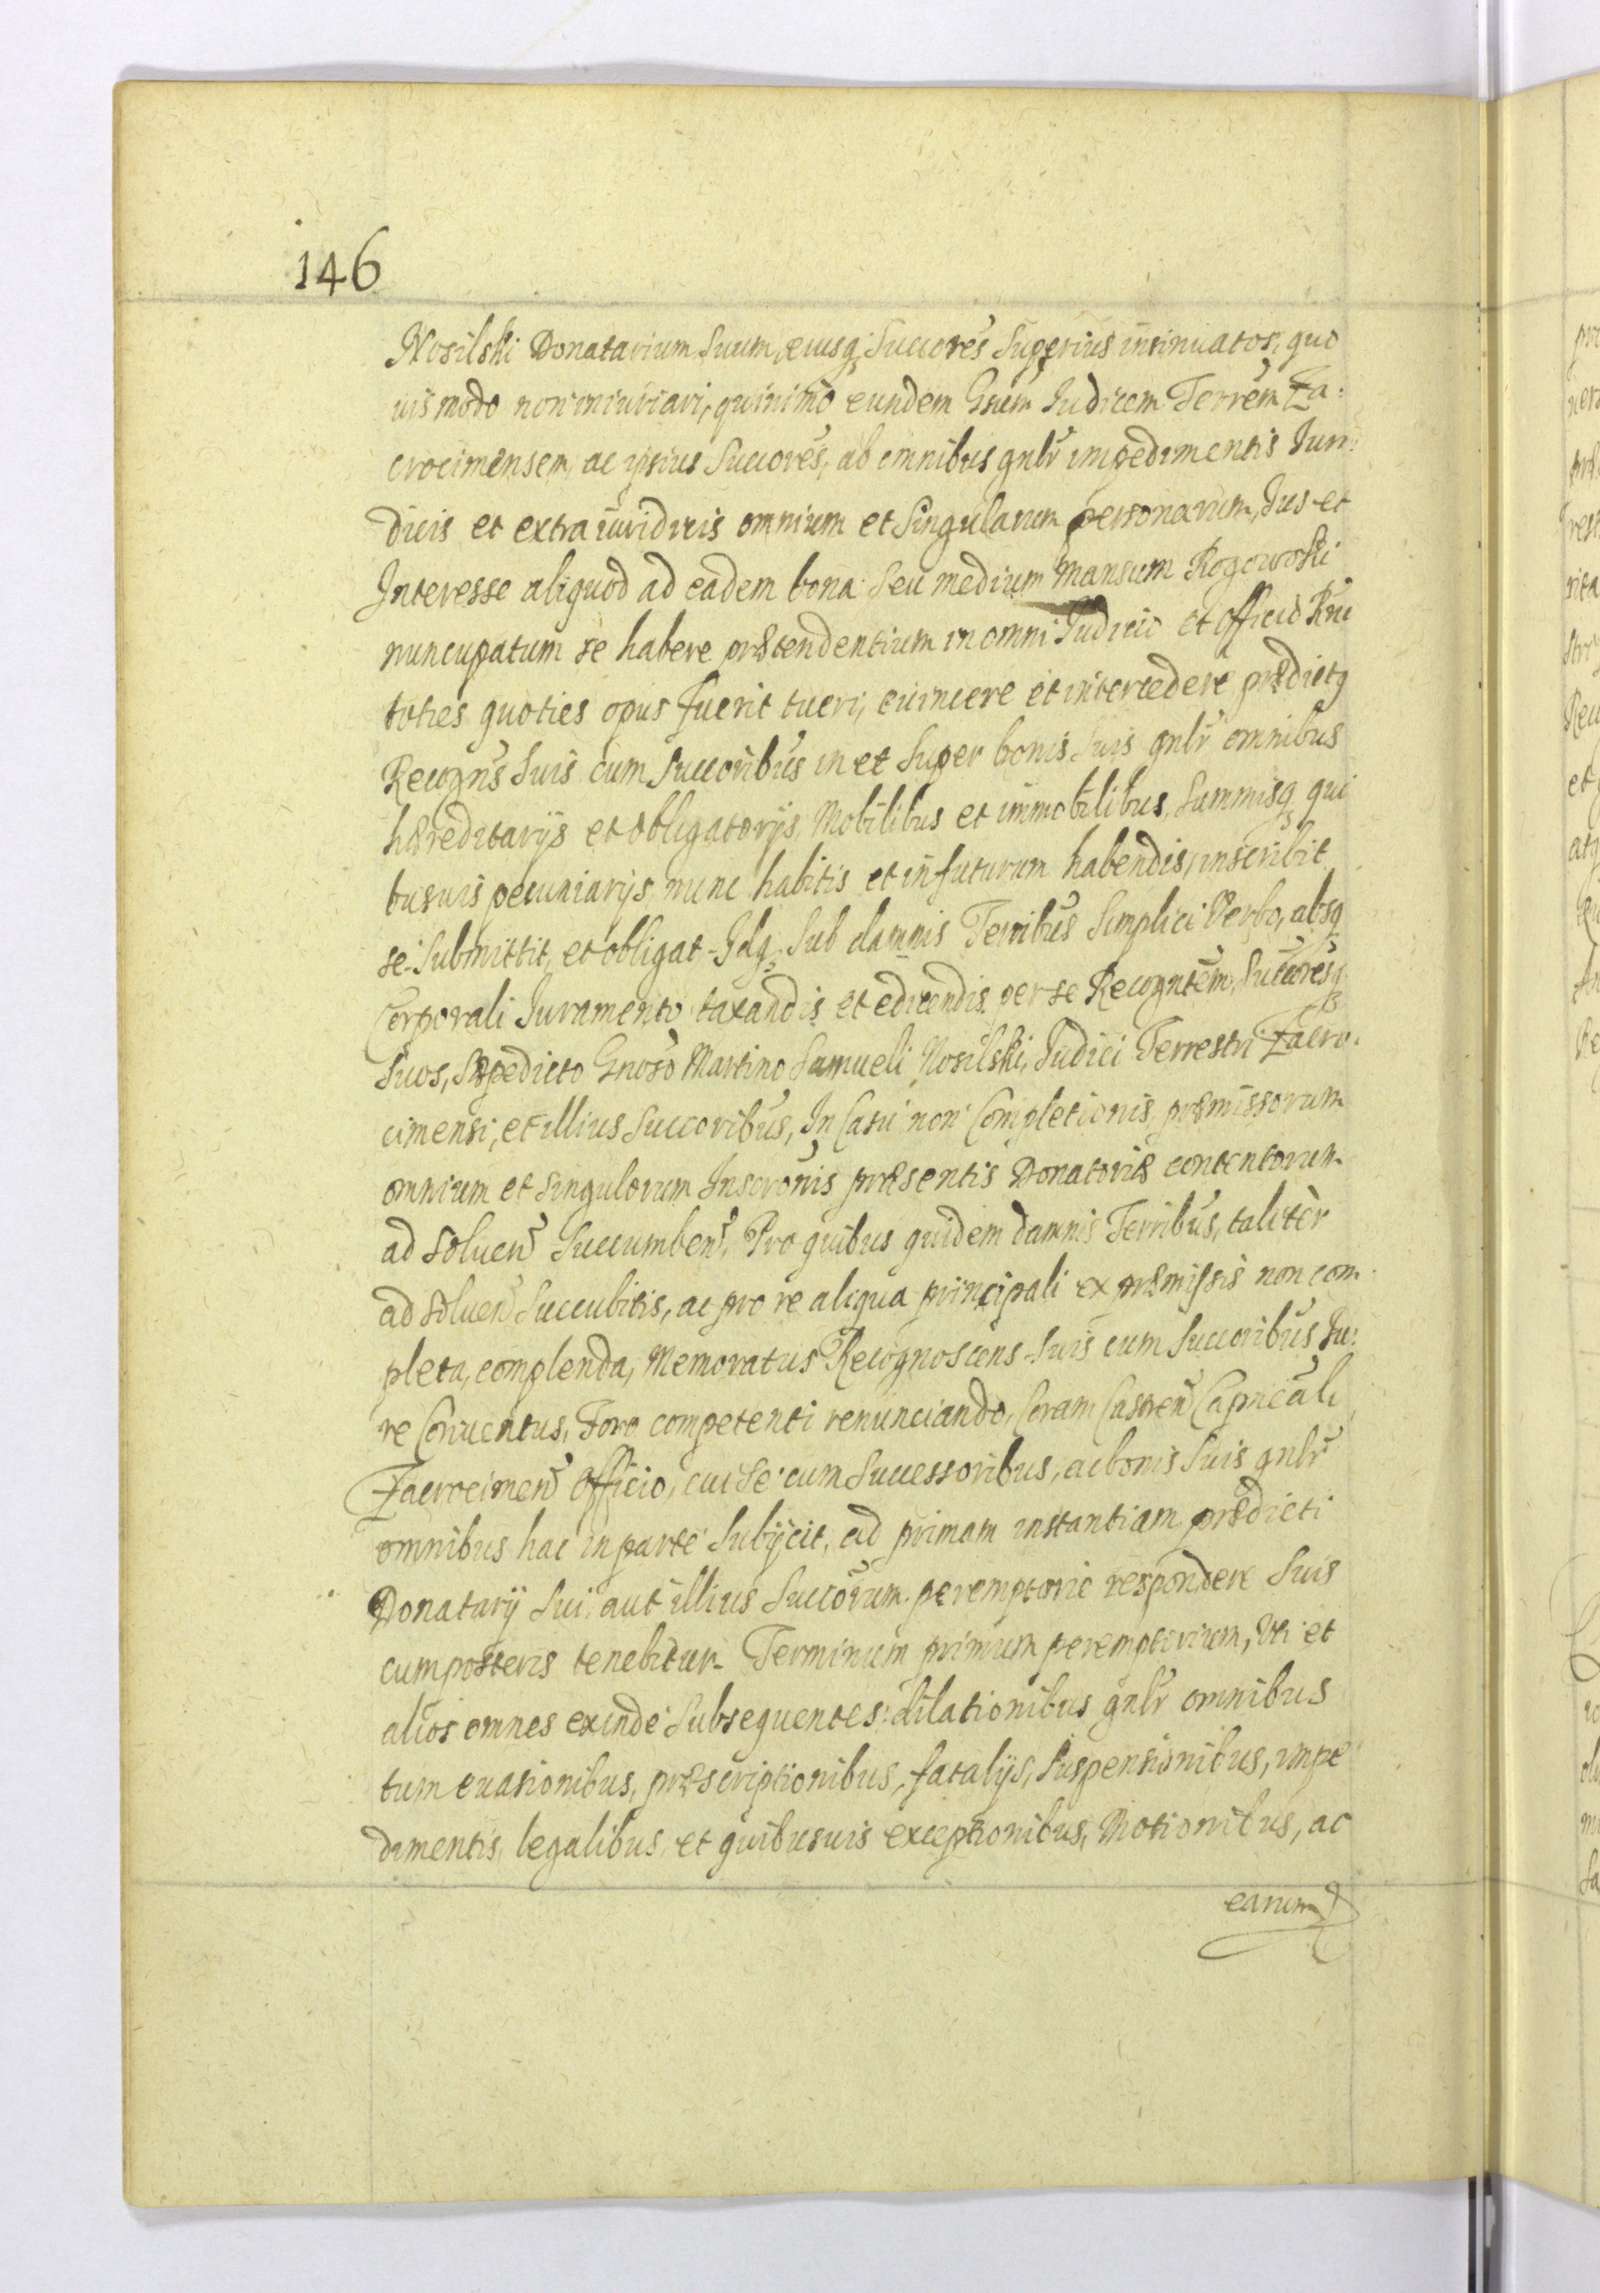 146
Nosilski Donatarium Suum, eiusq; Succores Superius insinuatos, quo
uis modo non iniuriari, quinimo eundem Gnsum Iudicem Terrem Za:
crocimensem, ac ipsius Succores, ab omnibus gnlr impedimentis Iuri
dicis et extra iuridicis omnium et Singularum personarum, Ius et
Interesse aliquod ad eadem bona Seu medium Mansum Rogowski
nuncupatum se habere prætendentium in omni Iudicio et officio Rni
toties quoties opus fuerit tueri, euincere et intercedere prædictq
Recogns Suis cum Succoribus in et Super bonis Suis gnlr omnibus
hæreditarijs et obligatorijs, Mobilibus et immobilibus, Summisq; qui
busuis pecuniarijs, nunc habitis et in futurum habendis, inscribit
se Submittit, et obligat Idq; Sub damnis Terribus Simplici Verbo, absq
Corporali Iuramento taxandis et edicendis per se Recogntem, Succoresq
Suos, Sæpedicto Gnoso Martino Samueli Nosilski, Iudici Terrestri Zacro.
cimensi, et illius Succoribus, In Casu non Completionis præmissorum
omnium et Singulorum Inscronis præsentis Donatoriæ contentorum
ad Soluen Succumben. Pro quibus quidem damnis Terribus, taliter
ad Soluen Succubitis, ac pro re aliqua principali ex præmissis non com
pleta, complenda, Memoratus Recognoscens Suis cum Succoribus Iu:
re Conuentus, Foro competenti renunciando, Coram Castren Capneali
Zacrocimen Officio, cui Se cum Successoribus, ac bonis Suis gnlr
omnibus hac in parte Subijcit, ad primam instantiam prædicti
Donatarij Sui, aut illius Succorum peremptorie respondere Suis
cum posteris tenebitur. Terminum primum peremptorium, Vti et
alios omnes exinde Subsequentes: dilationibus gnlr omnibus
tum euasionibus, præscriptionibus, fatalijs, Suspensionibus, impe
dimentis, legalibus, et quibusuis exceptionibus, Motionibus, ac
earum